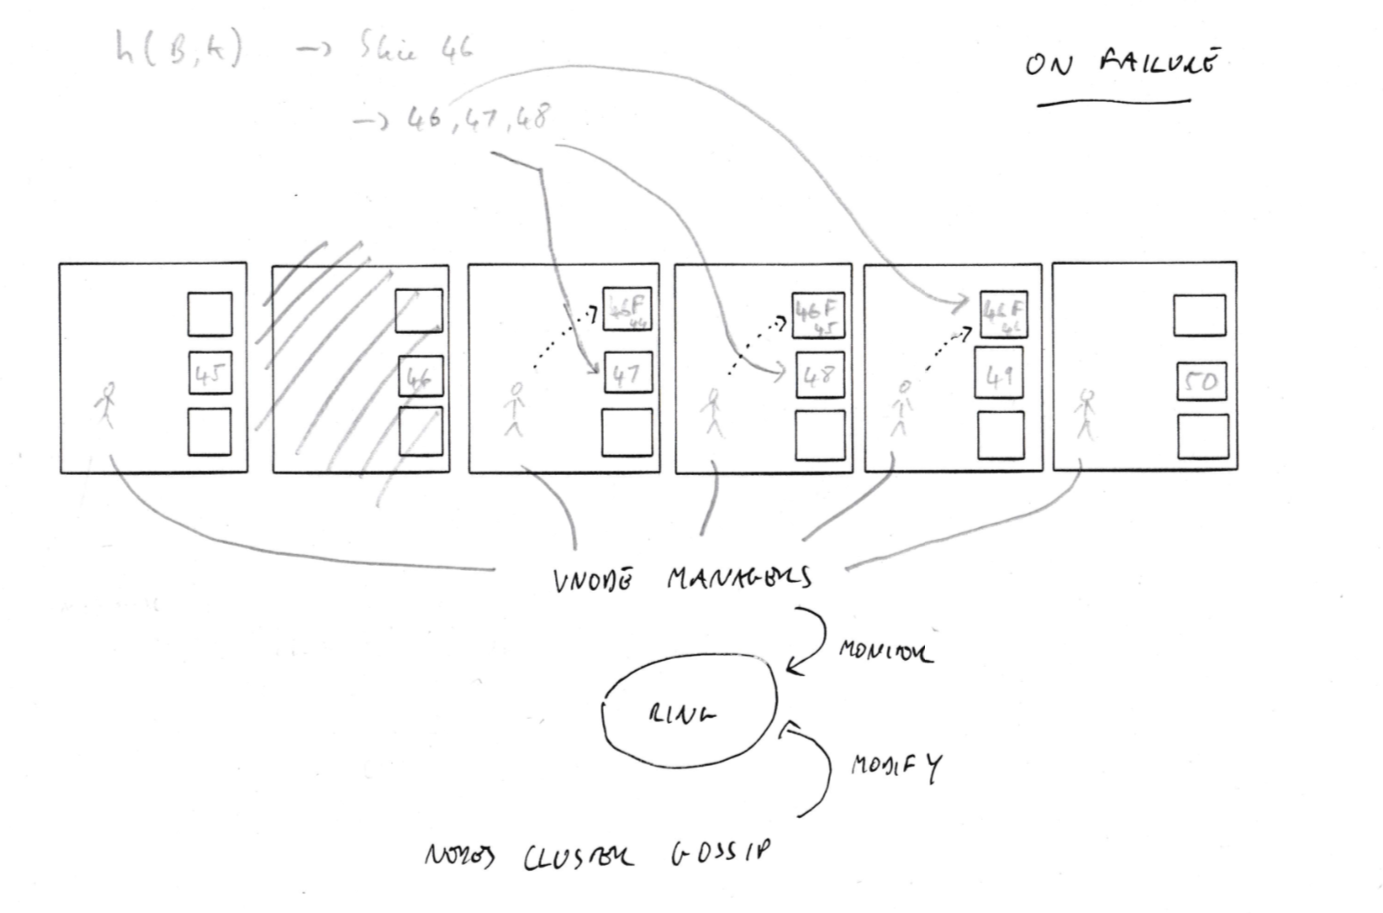 h(B,k) → Slice 46
→ 46,47,48
ON FAILURE
46F
44
46F
45
46F
46
45
46
47
48
49
50
VNODE MANAGERS
MONITOR
RING
MODIFY
NODES CLUSTER GOSSIP